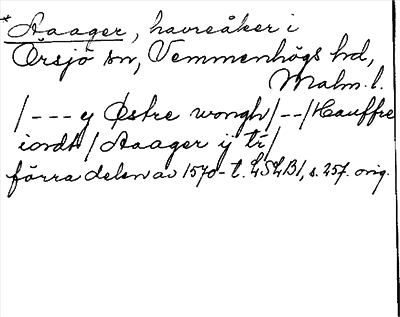 *Aaager, havreåker i
Örsjö sn, Vemmenhögs hd,
Malm. l.
/ - - - y Østre wongh / - - / Hauffre
iordt / Aaager ij tr /
förra delen av 1570-t. LSLB1, s. 257. orig.